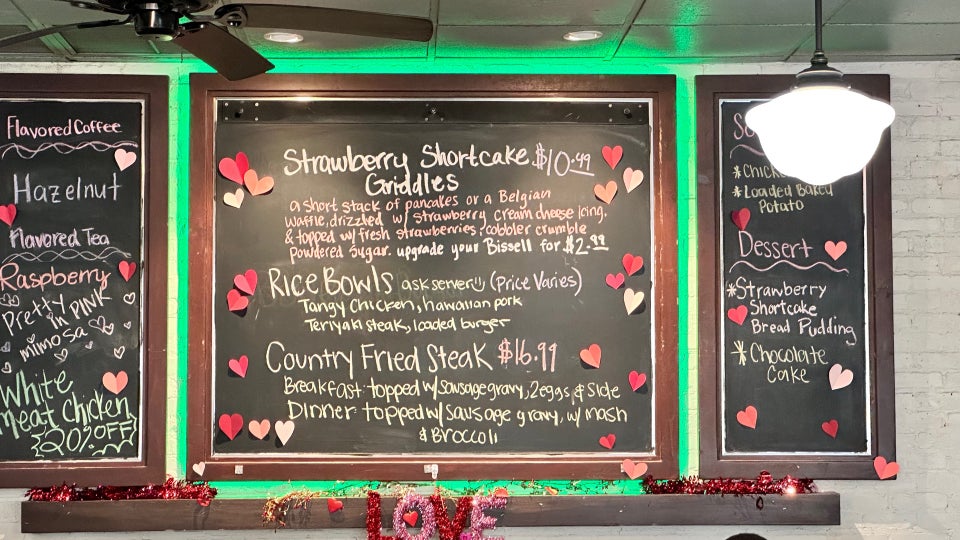 Flavored Coffee
Hazelnut
Flavored Tea
Raspberry
Pretty
in PINK
mimosa
White
meat Chicken
20% OFF
Strawberry Shortcake $10.49
Griddles
a short stack of pancakes or a Belgian
waffle, drizzled w/ strawberry cream cheese icing,
& topped w/ fresh strawberries, cobbler crumble
powdered sugar. upgrade your Bissell for $2.99
Rice Bowls ask server!! (Price Varies)
Tangy Chicken, hawaiian pork
Teriyaki steak, loaded burger
Country Fried Steak $16.99
Breakfast- topped w/ sausage gravy, 2 eggs, & Side
Dinner- topped w/ Sausage gravy, w/ mash
& Broccoli
*Loaded Baked
Potato
Dessert
*Strawberry
Shortcake
Bread Pudding
*Chocolate
Cake
LOVE